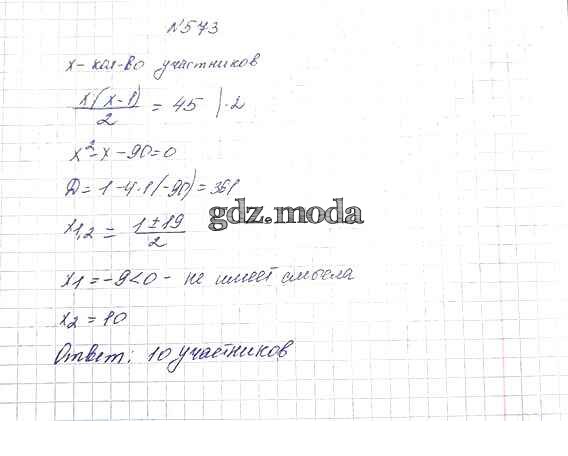 №573
x - кол-во участников
x(x-1)/2 = 45 |·2
x²-x-90=0
D=1-4·1(-90)=361
x1,2 = 1±19/2
gdz.moda
x1=-9<0 - не имеет смысла
x2=10
Ответ: 10 участников